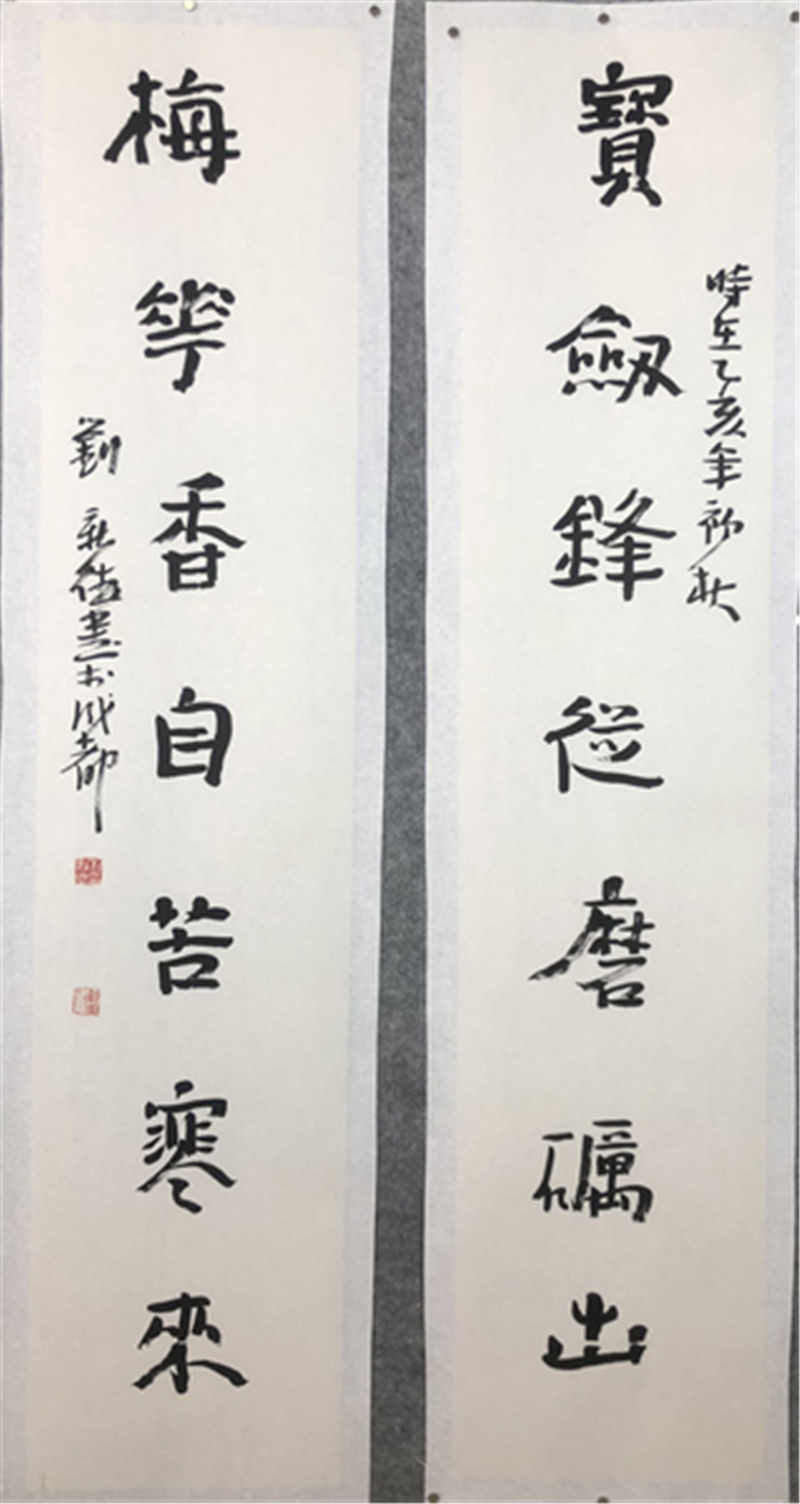 寶劒鋒從磨礪出
時在乙亥年初秋
梅華香自苦寒來
劉新德書於成都